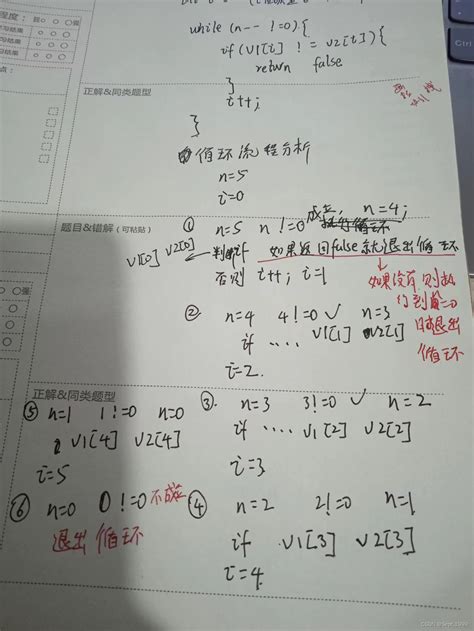 while (n-- != 0) {
if (v1[i] != v2[i]) {
return false
}
i++;
}
正解&同类题型
循环流程分析
n=5
i=0
题目&错解（可粘贴）
① n=5 n!=0 成立, n=4;
v1[0] v2[0] ← 判断if 如果返回false就退出循环
否则 i++; i=1
如果没有则执
行到第二0
时退出
循环
② n=4 4!=0 ✓ n=3
if .... v1[1] v2[1]
i=2.
正解&同类题型
③ n=3 3!=0 ✓ n=2
if .... v1[2] v2[2]
i=3
④ n=2 2!=0 n=1
if v1[3] v2[3]
i=4
⑤ n=1 1!=0 n=0
v1[4] v2[4]
i=5
⑥ n=0 0!=0 不成立
退出循环